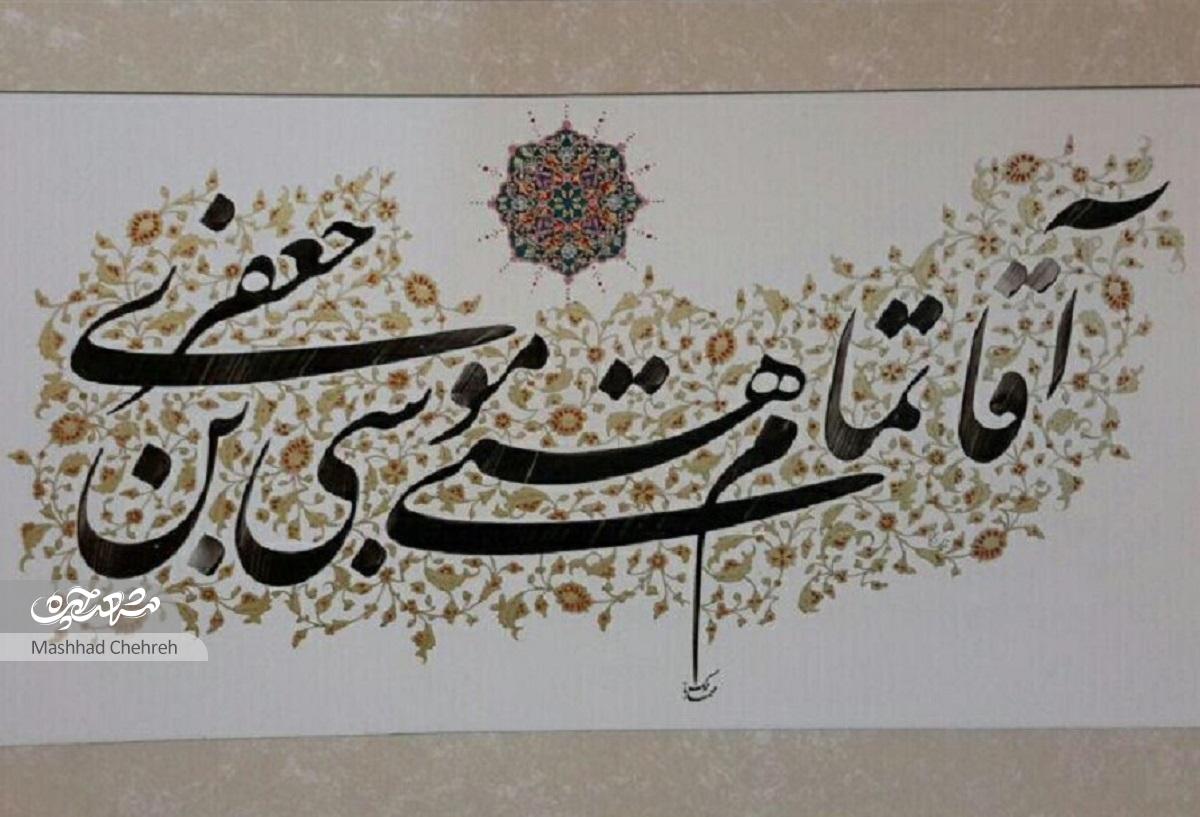 آقا تمام هستی موسی بن جعفری
مشهد چهره
Mashhad Chehreh